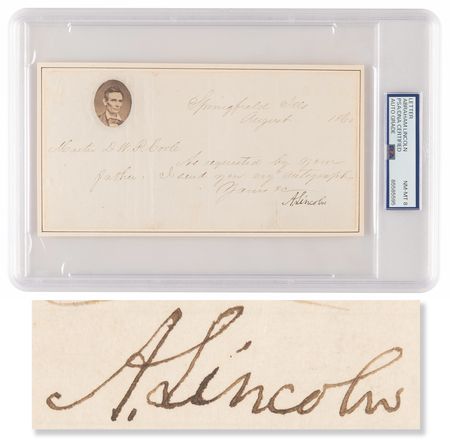 Springfield Ills
August 1860
Master
As requested by your
father, I send you my autograph
Yours &c
A. Lincoln
LETTER
ABRAHAM LINCOLN
PSA/DNA CERTIFIED
AUTO GRADE
NM-MT 8
A. Lincoln